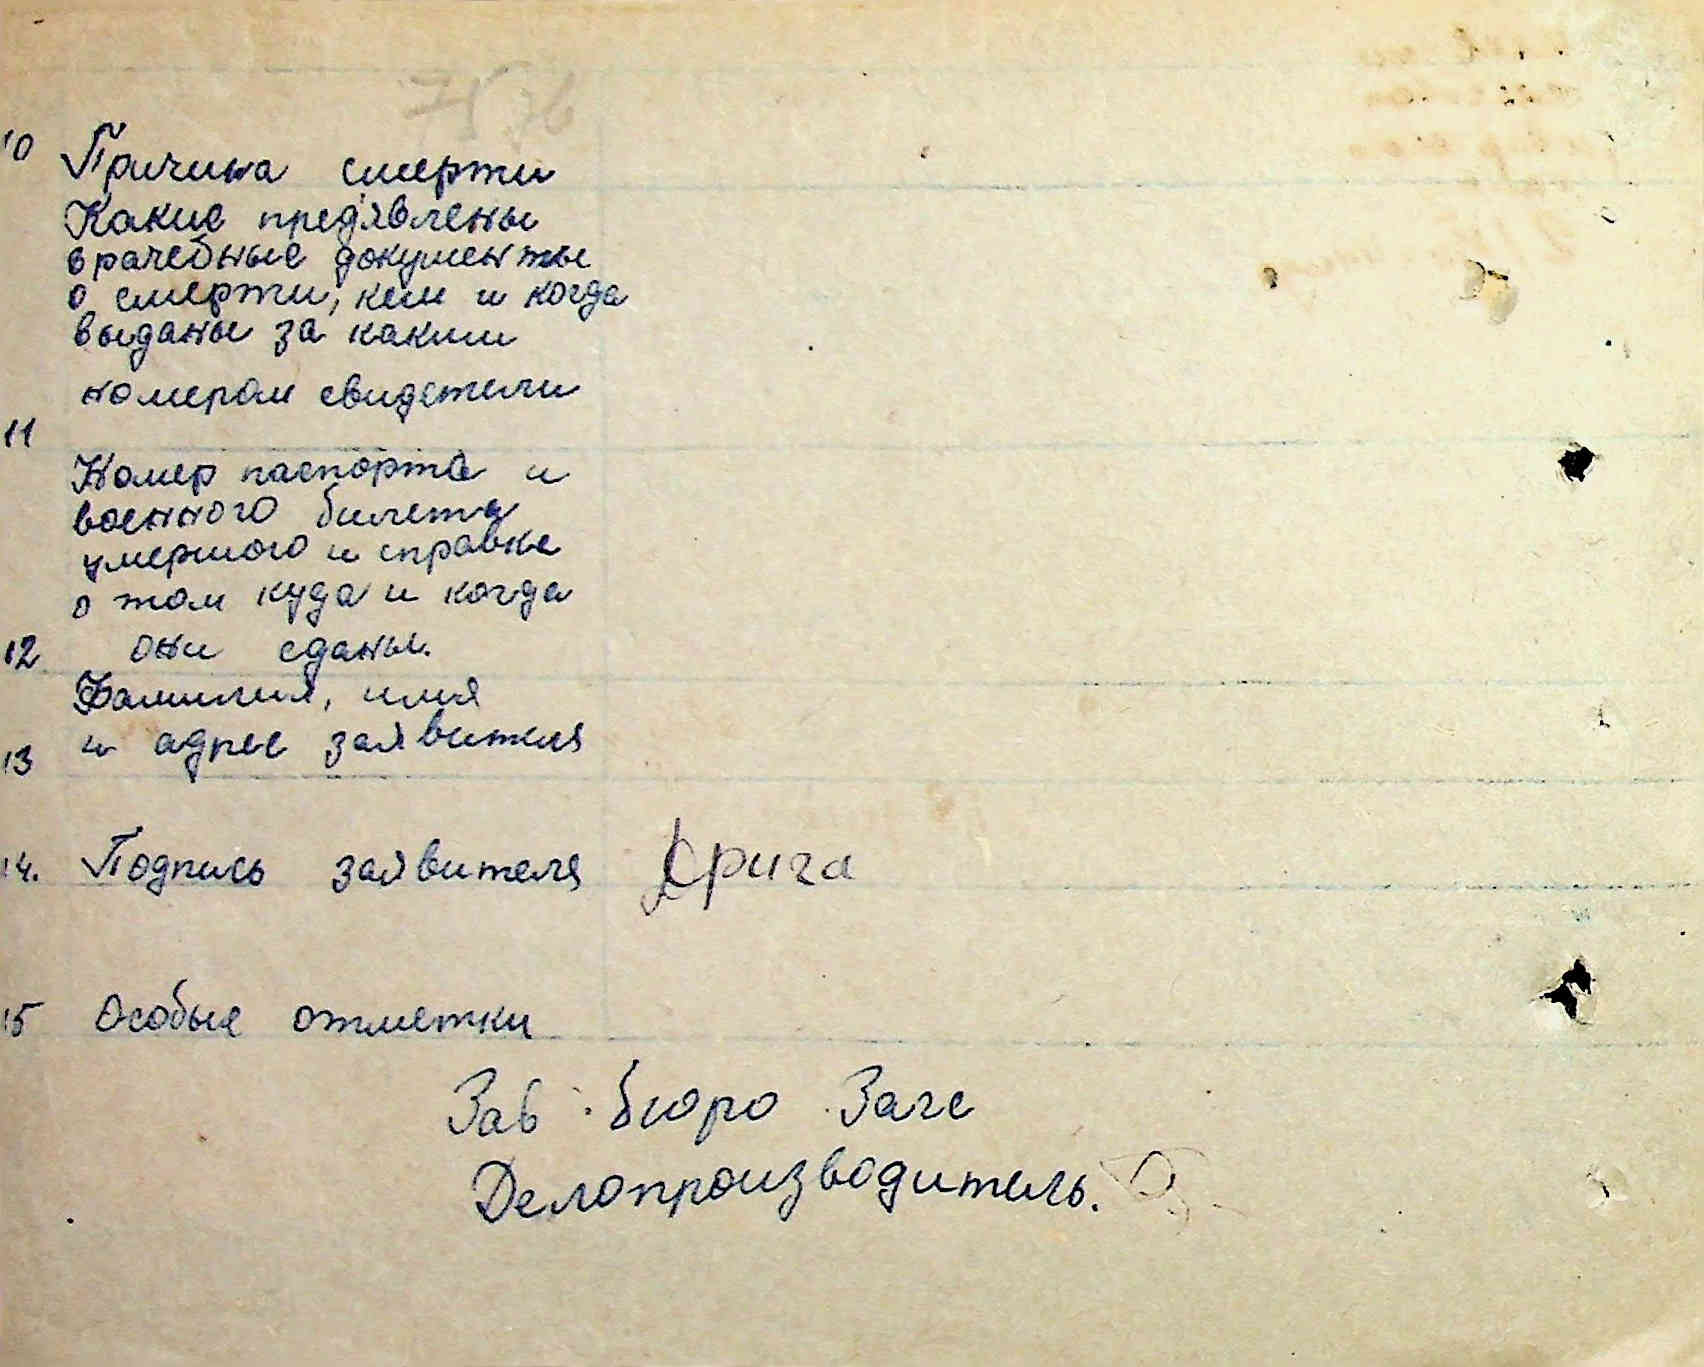 10 Причина смерти
Какие предъявлены
врачебные документы
о смерти, кем и когда
выданы за каким
номером свидетели
11
Номер паспорта и
военного билета
умершого и справке
о том куда и когда
12 они сданы.
Фамилия, имя
и адрес заявителя
13
14. Подпись заявителя Дрига
15 Особые отметки
Зав. бюро Загс
Делопроизводитель.